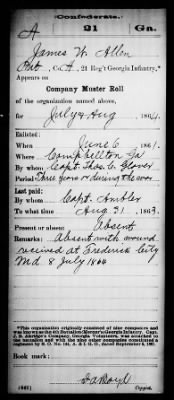 Confederate.
A 21 Ga.
James W. Allen
Pvt, Co. A, 21 Reg't Georgia Infantry.*
Appears on
Company Muster Roll
of the organization named above,
for July & Aug, 1864.
Enlisted:
When June 6, 1861.
Where Campbellton Ga
By whom Capt. Thos. C. Glover
Period Three years or during the war
Last paid:
By whom Capt. Ambler
To what time Aug 31, 1863.
Present or absent Absent
Remarks: Absent with wound
received at Frederick City
Md. 8 July 1864
*This organization originally consisted of nine companies and
Book mark:
(642) Copyist.